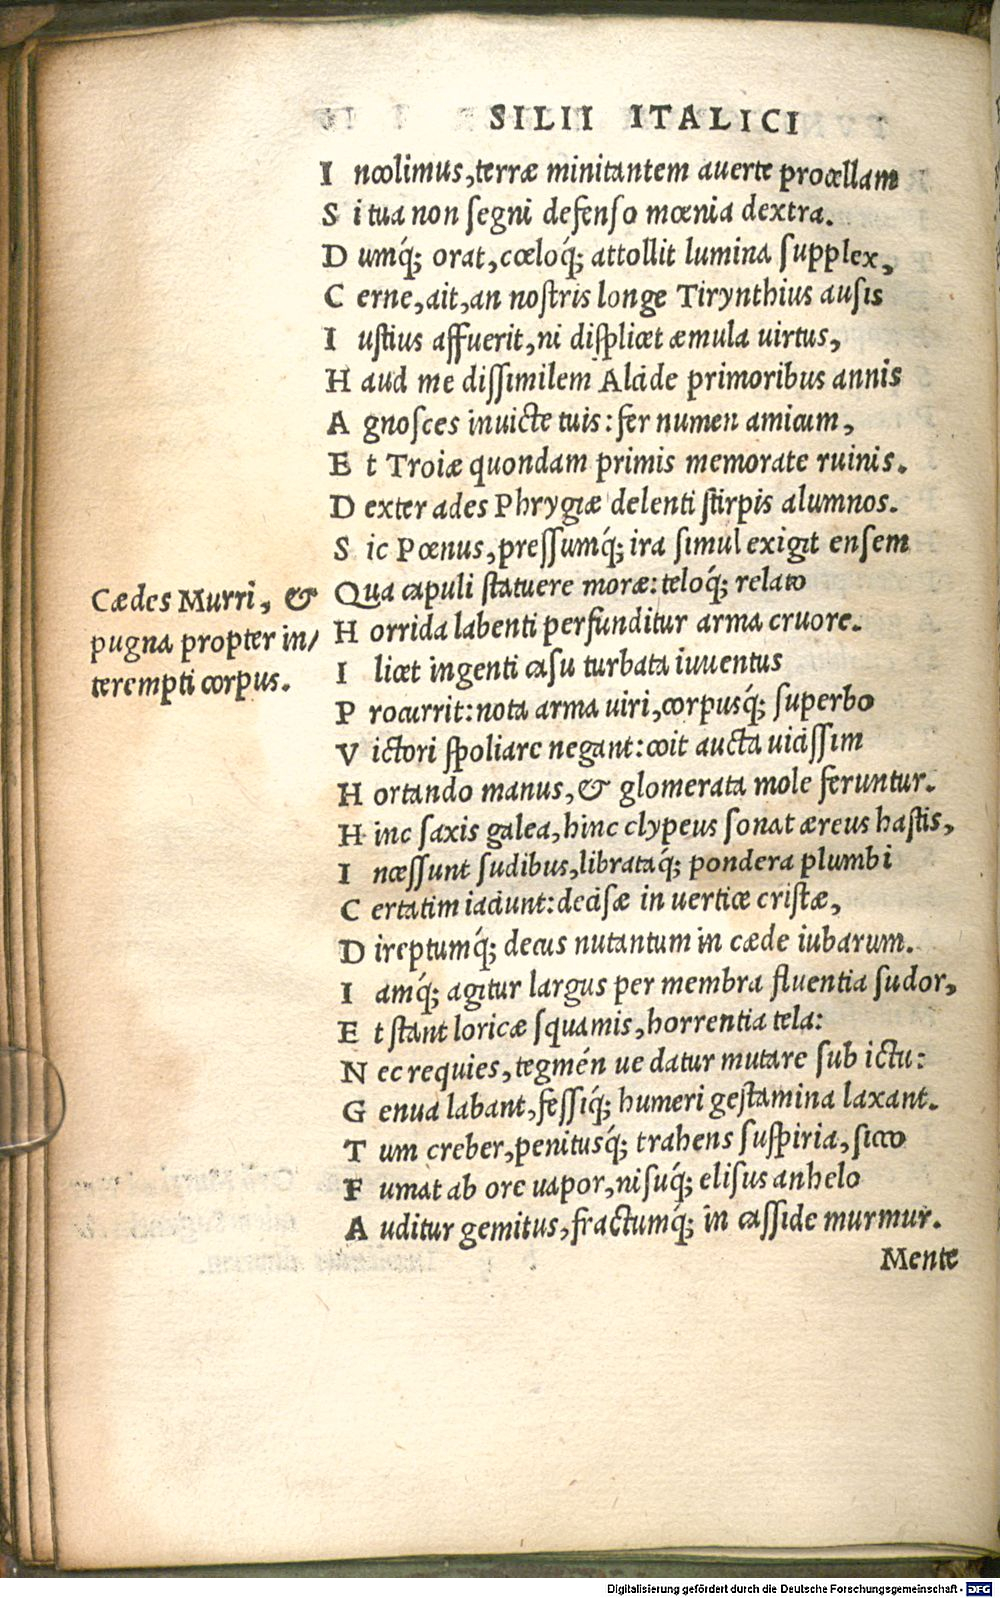 SILII ITALICI
I ncolimus, terræ minitantem auerte procellam
S i tua non segni defenso mœnia dextra.
D umq́; orat, cœloq́; attollit lumina supplex,
C erne, ait, an nostris longe Tirynthius ausis
I ustius affuerit, ni displicet æmula uirtus,
H aud me dissimilem Alcide primoribus annis
A gnosces inuicte tuis: fer numen amicum,
E t Troiæ quondam primis memorate ruinis.
D exter ades Phrygiæ delenti stirpis alumnos.
S ic Pœnus, pressumq́; ira simul exigit ensem
Qua capuli statuere moræ: teloq́; relato
H orrida labenti perfunditur arma cruore.
I licet ingenti casu turbata iuuentus
P rocurrit: nota arma uiri, corpusq́; superbo
V ictori spoliare negant: coit aucta uicissim
H ortando manus, & glomerata mole feruntur.
H inc saxis galea, hinc clypeus sonat æreus hastis,
I ncessunt sudibus, librataq́; pondera plumbi
C ertatim iaciunt: decisæ in uertice cristæ,
D ireptumq́; decus nutantum in cæde iubarum.
I amq́; agitur largus per membra fluentia sudor,
E t stant loricæ squamis, horrentia tela:
N ec requies, tegmén ue datur mutare sub ictu:
G enua labant, fessiq́; humeri gestamina laxant.
T um creber, penitusq́; trahens suspiria, sicco
F umat ab ore uapor, nisuq́; elisus anhelo
A uditur gemitus, fractumq́; in casside murmur.
Mente
Cædes Murri, &
pugna propter in/
terempti corpus.
Digitalisierung gefördert durch die Deutsche Forschungsgemeinschaft - DFG